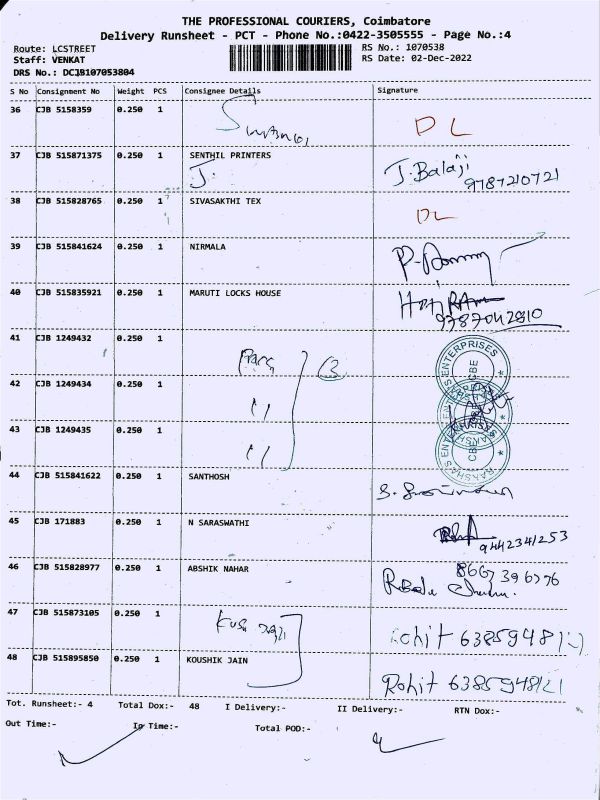 THE PROFESSIONAL COURIERS, Coimbatore
Delivery Runsheet - PCT - Phone No.:0422-3505555 - Page No.:4
Route: LCSTREET
RS No.: 1070538
Staff: VENKAT
RS Date: 02-Dec-2022
DRS No.: DCJB107053804
S No Consignment No Weight PCS Consignee Details Signature
36 CJB 5158359 0.250 1 DL
37 CJB 515871375 0.250 1 SENTHIL PRINTERS
J. J. Balaji
9787210721
38 CJB 515828765 0.250 1 SIVASAKTHI TEX DL
39 CJB 515841624 0.250 1 NIRMALA
40 CJB 515835921 0.250 1 MARUTI LOCKS HOUSE
9787042810
41 CJB 1249432 0.250 1
3
ENTERPRISES
CBE
42 CJB 1249434 0.250 1
"
43 CJB 1249435 0.250 1
"
RAKSHAS ENTERPRISES
CBE
44 CJB 515841622 0.250 1 SANTHOSH
45 CJB 171883 0.250 1 N SARASWATHI
9442341253
46 CJB 515828977 0.250 1 ABSHIK NAHAR
8667396776
47 CJB 515873105 0.250 1
Rohit 63859481
48 CJB 515895850 0.250 1 KOUSHIK JAIN
Rohit 6385948121
Tot. Runsheet:- 4 Total Dox:- 48 I Delivery:- II Delivery:- RTN Dox:-
Out Time:- In Time:- Total POD:-